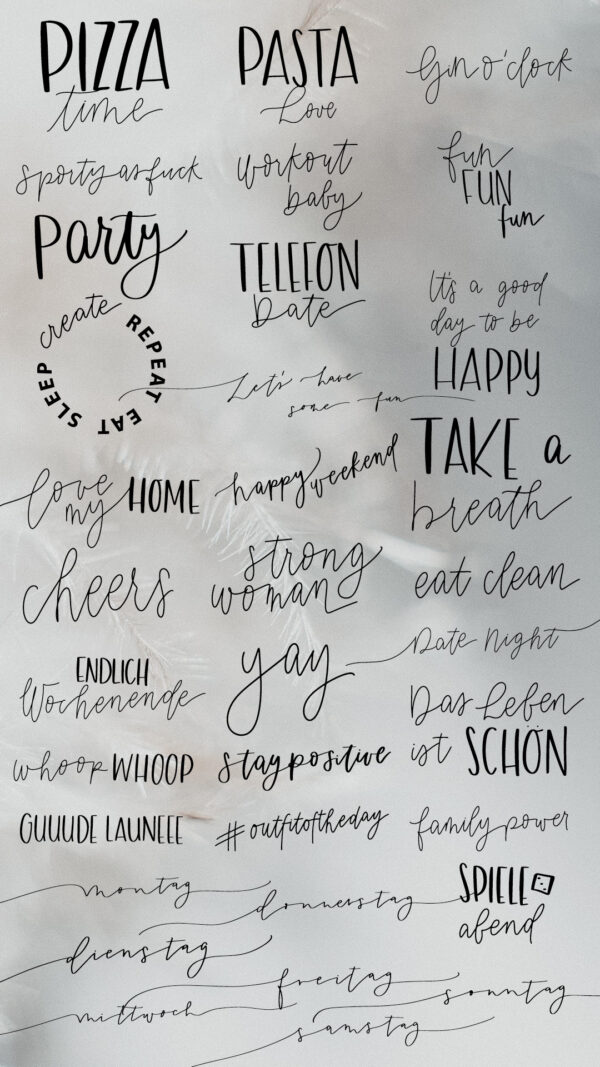 PIZZA
time
PASTA
Love
Gin o'clock
sporty as fuck
workout
baby
fun
FUN
fun
Party
TELEFON
Date
It's a good
day to be
HAPPY
create
REPEAT EAT SLEEP
Let's have
some fun
love
my HOME
happy weekend
TAKE a
breath
cheers
strong
woman
eat clean
Date Night
ENDLICH
Wochenende
yay
Das Leben
ist SCHÖN
whoop WHOOP
stay positive
GUUUDE LAUNEEE
#outfitoftheday
family power
montag
donnerstag
SPIELE
abend
dienstag
freitag
sonntag
mittwoch
samstag